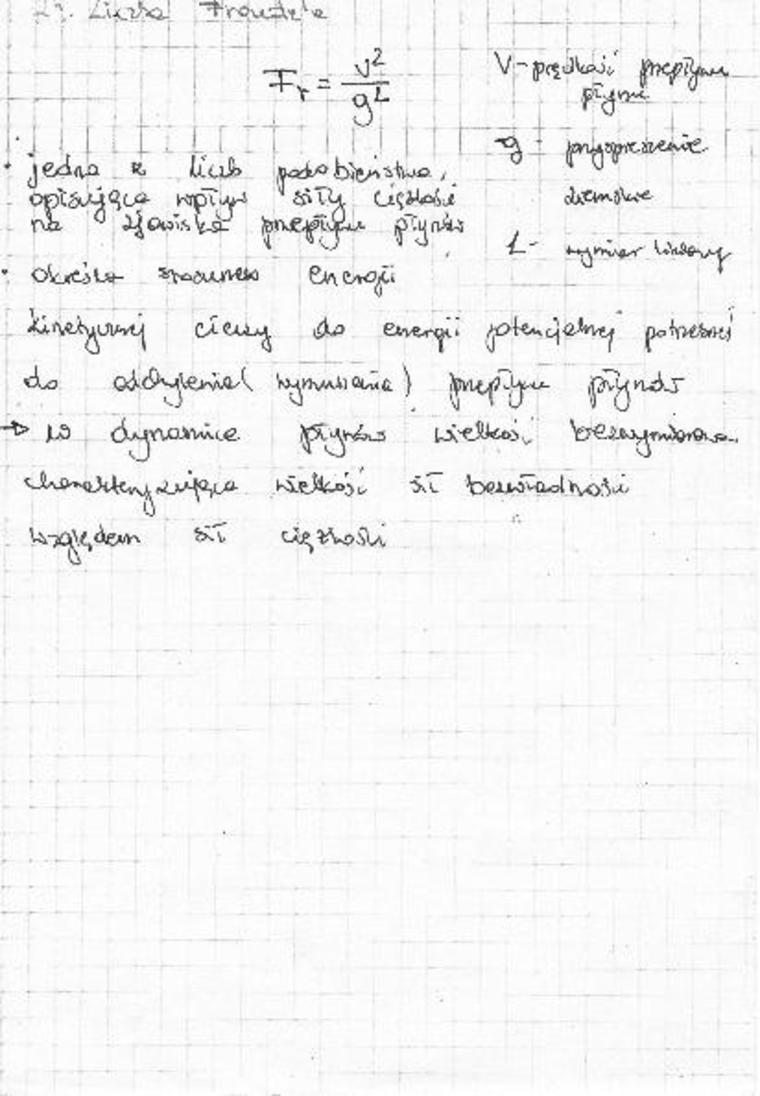 23. Liczba Froude'a
Fr = v²/gL
V - prędkość przepływu
płynu
g - przyspieszenie
ziemskie
L - wymiar liniowy
• jedna z liczb podobieństwa,
opisująca wpływ siły ciężkości
na zjawiska przepływu płynów
• określa stosunek energii
kinetycznej cieczy do energii potencjalnej potrzebnej
do odchylenia (wymuszania) przepływu płynów
→ w dynamice płynów wielkość bezwymiarowa
charakteryzująca wielkość sił bezwładności
względem sił ciężkości